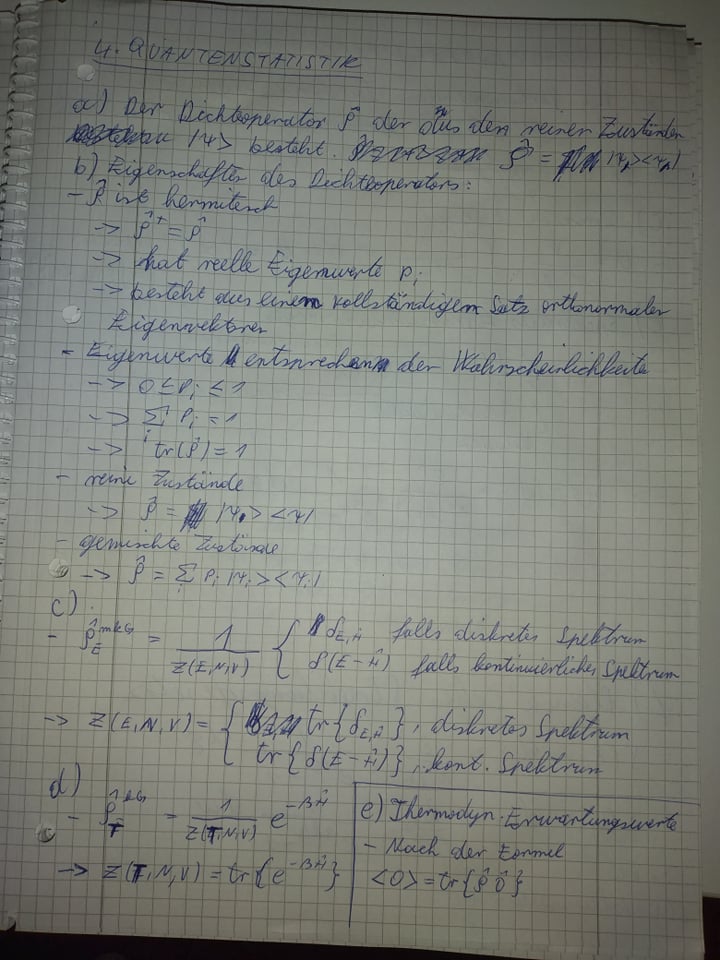 4. QUANTENSTATISTIK
a) Der Dichteoperator ρ̂ der aus den reinen Zuständen
|Ψ> besteht. ρ̂ = |Ψ><Ψ|
b) Eigenschaften des Dichteoperators:
- ρ̂ ist hermitesch
-> ρ̂⁺ = ρ̂
-> hat reelle Eigenwerte pᵢ
-> besteht aus einem vollständigem Satz orthonormaler
Eigenvektoren
- Eigenwerte entsprechen der Wahrscheinlichkeite
-> 0 ≤ Pᵢ ≤ 1
-> Σᵢ Pᵢ = 1
-> tr(ρ̂) = 1
- reine Zustände
-> ρ̂ = |Ψ><Ψ|
- gemischte Zustände
-> ρ̂ = Σᵢ Pᵢ |Ψᵢ><Ψᵢ|
c)
- ρ̂_E^mkG = 1/Z(E,N,V) { δ_E,Ĥ falls diskretes Spektrum
δ(E-Ĥ) falls kontinuierliches Spektrum
-> Z(E,N,V) = { tr{δ_E,Ĥ}, diskretes Spektrum
tr{δ(E-Ĥ)}, kont. Spektrum
d)
- ρ̂_T^kG = 1/Z(T,N,V) e^-βĤ
-> Z(T,N,V) = tr{e^-βĤ}
e) Thermodyn. Erwartungswerte
- Nach der Formel
<O> = tr{ρ̂ Ô}